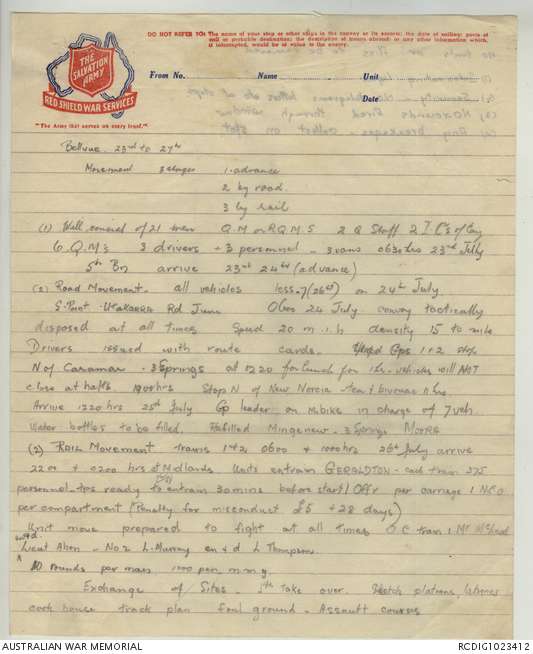 DO NOT REFER TO: The name of your ship or other ships in the convoy or its escorts; the date of sailing; ports of
call or probable destination; the description of troops aboard; or any other information which,
if intercepted, would be of value to the enemy.
THE
SALVATION
ARMY
RED SHIELD WAR SERVICES
"The Army that serves on every front."
From No. Name Unit
Date
Bellvue 23rd to 27th
Movement 3 stages 1. advance
2 by road
3 by rail
(1) Will consist of 21 men Q.M or R.Q.M.S 2 Q Staff 2 I.C's of Coy
6 Q.M's 3 drivers + 3 personnel - 3 vans 0630 hrs 23rd July
5th Bn arrive 23rd 24th (advance)
(2) Road Movement. all vehicles less 7 (26th) on 24th July
S. Point Utakarra Rd June 0600 24 July convoy tactically
disposed at all times Speed 20 m.i.h density 15 to mile
Drivers issued with route cards. Gps 1 + 2 stop
N of Caramar . 3 Springs at 1220 for lunch for 1 hr - vehicles will NOT
close at halts 1900 hrs Stop N of New Norcia tea + bivouac 11 hrs
Arrive 1220 hrs 25th July Gp leader on M.bike in charge of 7 veh.
Water bottles to be filled. Refilled Mingenew. 3 Springs Moora
(2) Rail Movement trains 1 + 2 0600 + 1000 hrs 26th July arrive
2200 + 0200 hrs at Midlands Units entrain GERALDTON - each train 275
personnel tps ready to entrain 30 mins before start 1 Offr per carriage 1 N.C.O
per compartment (Penalty for misconduct £5 + 28 days)
Unit move prepared to fight at all times O.C train 1 Mr
Lieut Ahern - No 2 L. Murray L Thompson
10 rounds per man 1000 per m.m.g
Exchange of Sites. 5th take over. Sketch platoons, latrines
cook house track plan foul ground - Assault courses
AUSTRALIAN WAR MEMORIAL
RCDIG1023412